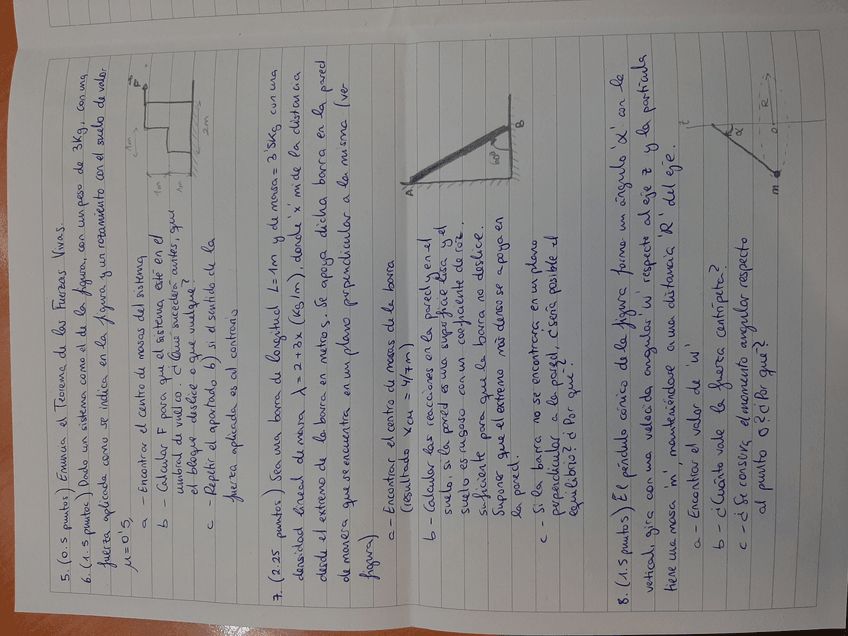 5. (0.5 puntos) Enuncia el Teorema de las Fuerzas Vivas.
6. (1.5 puntos) Dado un sistema como el de la figura, con un peso de 3Kg, con una
fuerza aplicada como se indica en la figura y un rozamiento con el suelo de valor
μ=0'5,
a - Encontrar el centro de masas del sistema
b - Calcular F para que el sistema esté en el
umbral de vuelco. ¿Qué sucederá antes, que
el bloque deslice o que vuelque?
c - Repetir el apartado b) si el sentido de la
fuerza aplicada es al contrario
1m
F
1m
1m
2m
7. (2.25 puntos) Sea una barra de longitud L=1m y de masa = 3'5Kg con una
densidad lineal de masa λ = 2+3x (Kg/m), donde 'x' mide la distancia
desde el extremo de la barra en metros. Se apoya dicha barra en la pared
de manera que se encuentra en un plano perpendicular a la misma (ver
figura)
a - Encontrar el centro de masas de la barra
(resultado xCM = 4/7m)
b - Calcular las reacciones en la pared y en el
suelo, si la pared es una superficie lisa y el
suelo es rugoso con un coeficiente de roz.
suficiente para que la barra no deslice.
Suponer que el extremo más denso se apoya en
la pared.
c - Si la barra no se encontrara en un plano
perpendicular a la pared, ¿sería posible el
equilibrio? ¿Por qué?
A
60º
B
8. (1.5 puntos) El péndulo cónico de la figura forma un ángulo 'α' con la
vertical, gira con una velocida angular 'w' respecto al eje z y la partícula
tiene una masa 'm', manteniéndose a una distancia 'R' del eje.
a - Encontrar el valor de 'w'
b - ¿Cuánto vale la fuerza centrípeta?
c - ¿Se conserva el momento angular respecto
al punto O? ¿Por qué?
α
R
O
m